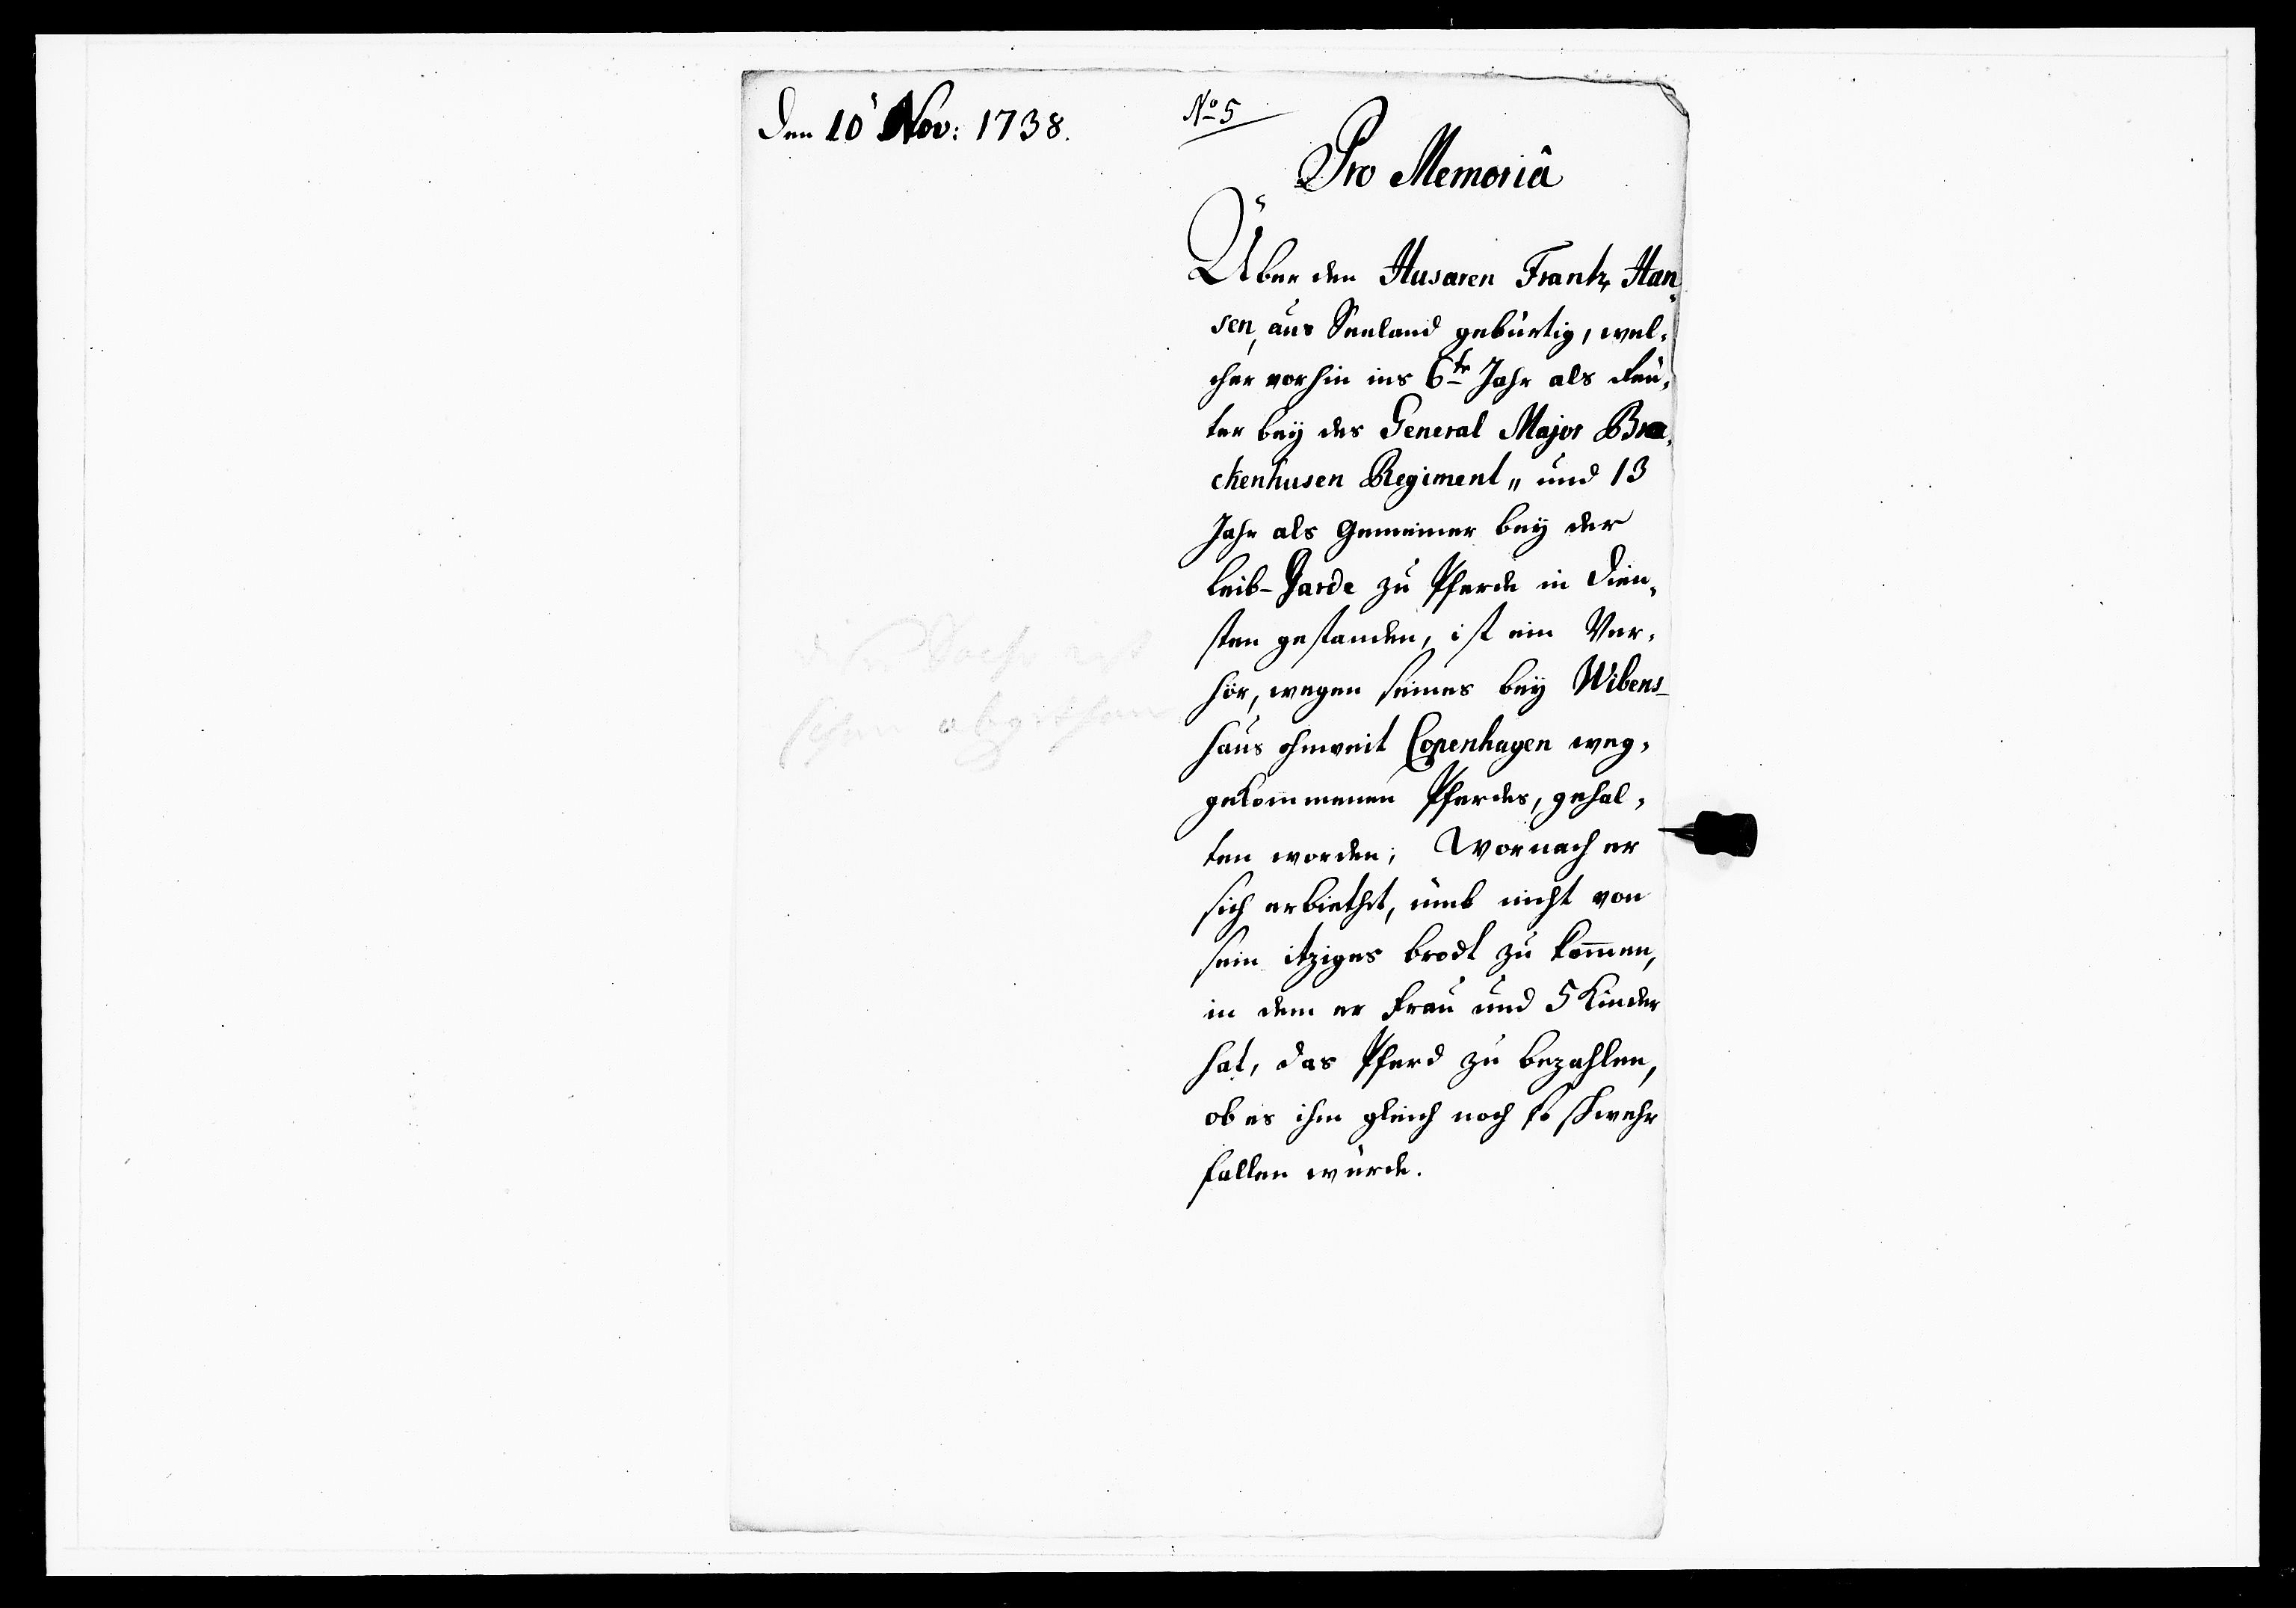 Den 10' Nov: 1738.
No 5
Pro Memoriâ
Über den Husaren Frantz Han-
sen, aus Seeland gebürtig, wel-
cher vorhin ins 6te Jahr als Reu-
ter bey des General Major Bra-
ckenhusen Regiment, und 13
Jahr als Gemeiner bey der
Leib-Garde zu Pferde in Dien-
sten gestanden, ist ein Ver-
hör, wegen seines bey Wibens-
haus ohnweit Copenhagen weg-
gekommenen Pferdes, gehal-
ten worden; Wornach er
sich erbiethet, umb nicht von
sein itziges brodt zu kom̄en,
in dem er Frau und 5 Kinder
hat, das Pferd zu bezahlen,
ob es ihm gleich noch so schwehr
fallen würde.
diese Sache ist
schon abgethan